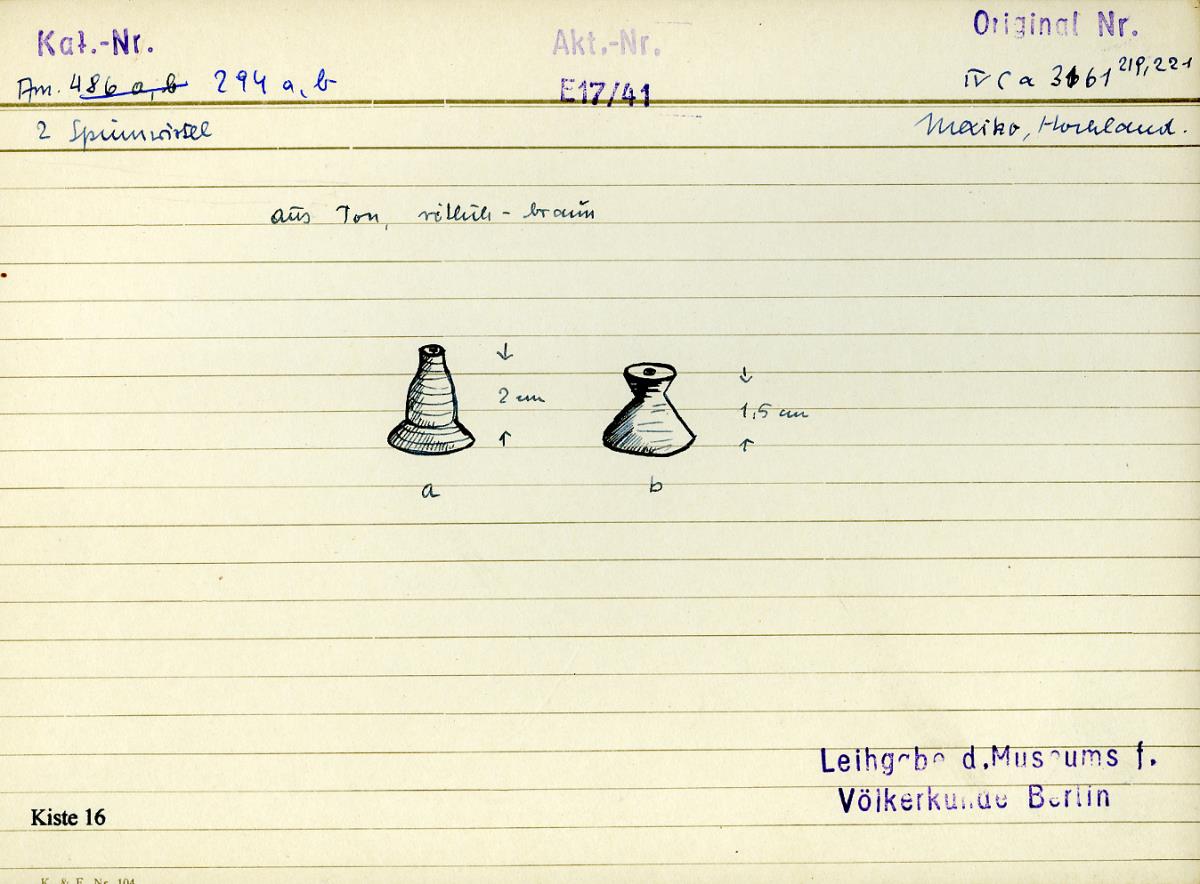 Kat.-Nr.
Akt.-Nr.
Original Nr.
Am. 486 a, b 294 a, b
E17/41
IV Ca 3161 219, 221
2 Spinnwirtel
Mexiko, Hochland.
aus Ton, rötlich-braun
2 cm
1,5 cm
a
b
Leihgabe d. Museums f.
Völkerkunde Berlin
Kiste 16
K. & E. Nr. 104